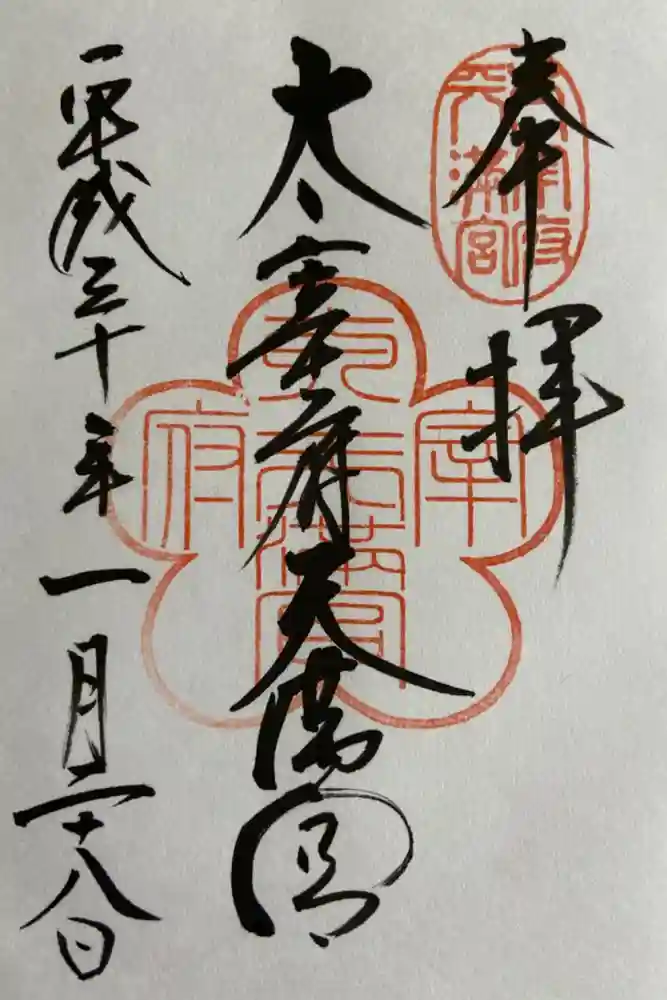 奉拝
太宰府
天満宮
太宰府天満宮
宰府
天満宮
平成三十年一月二十八日